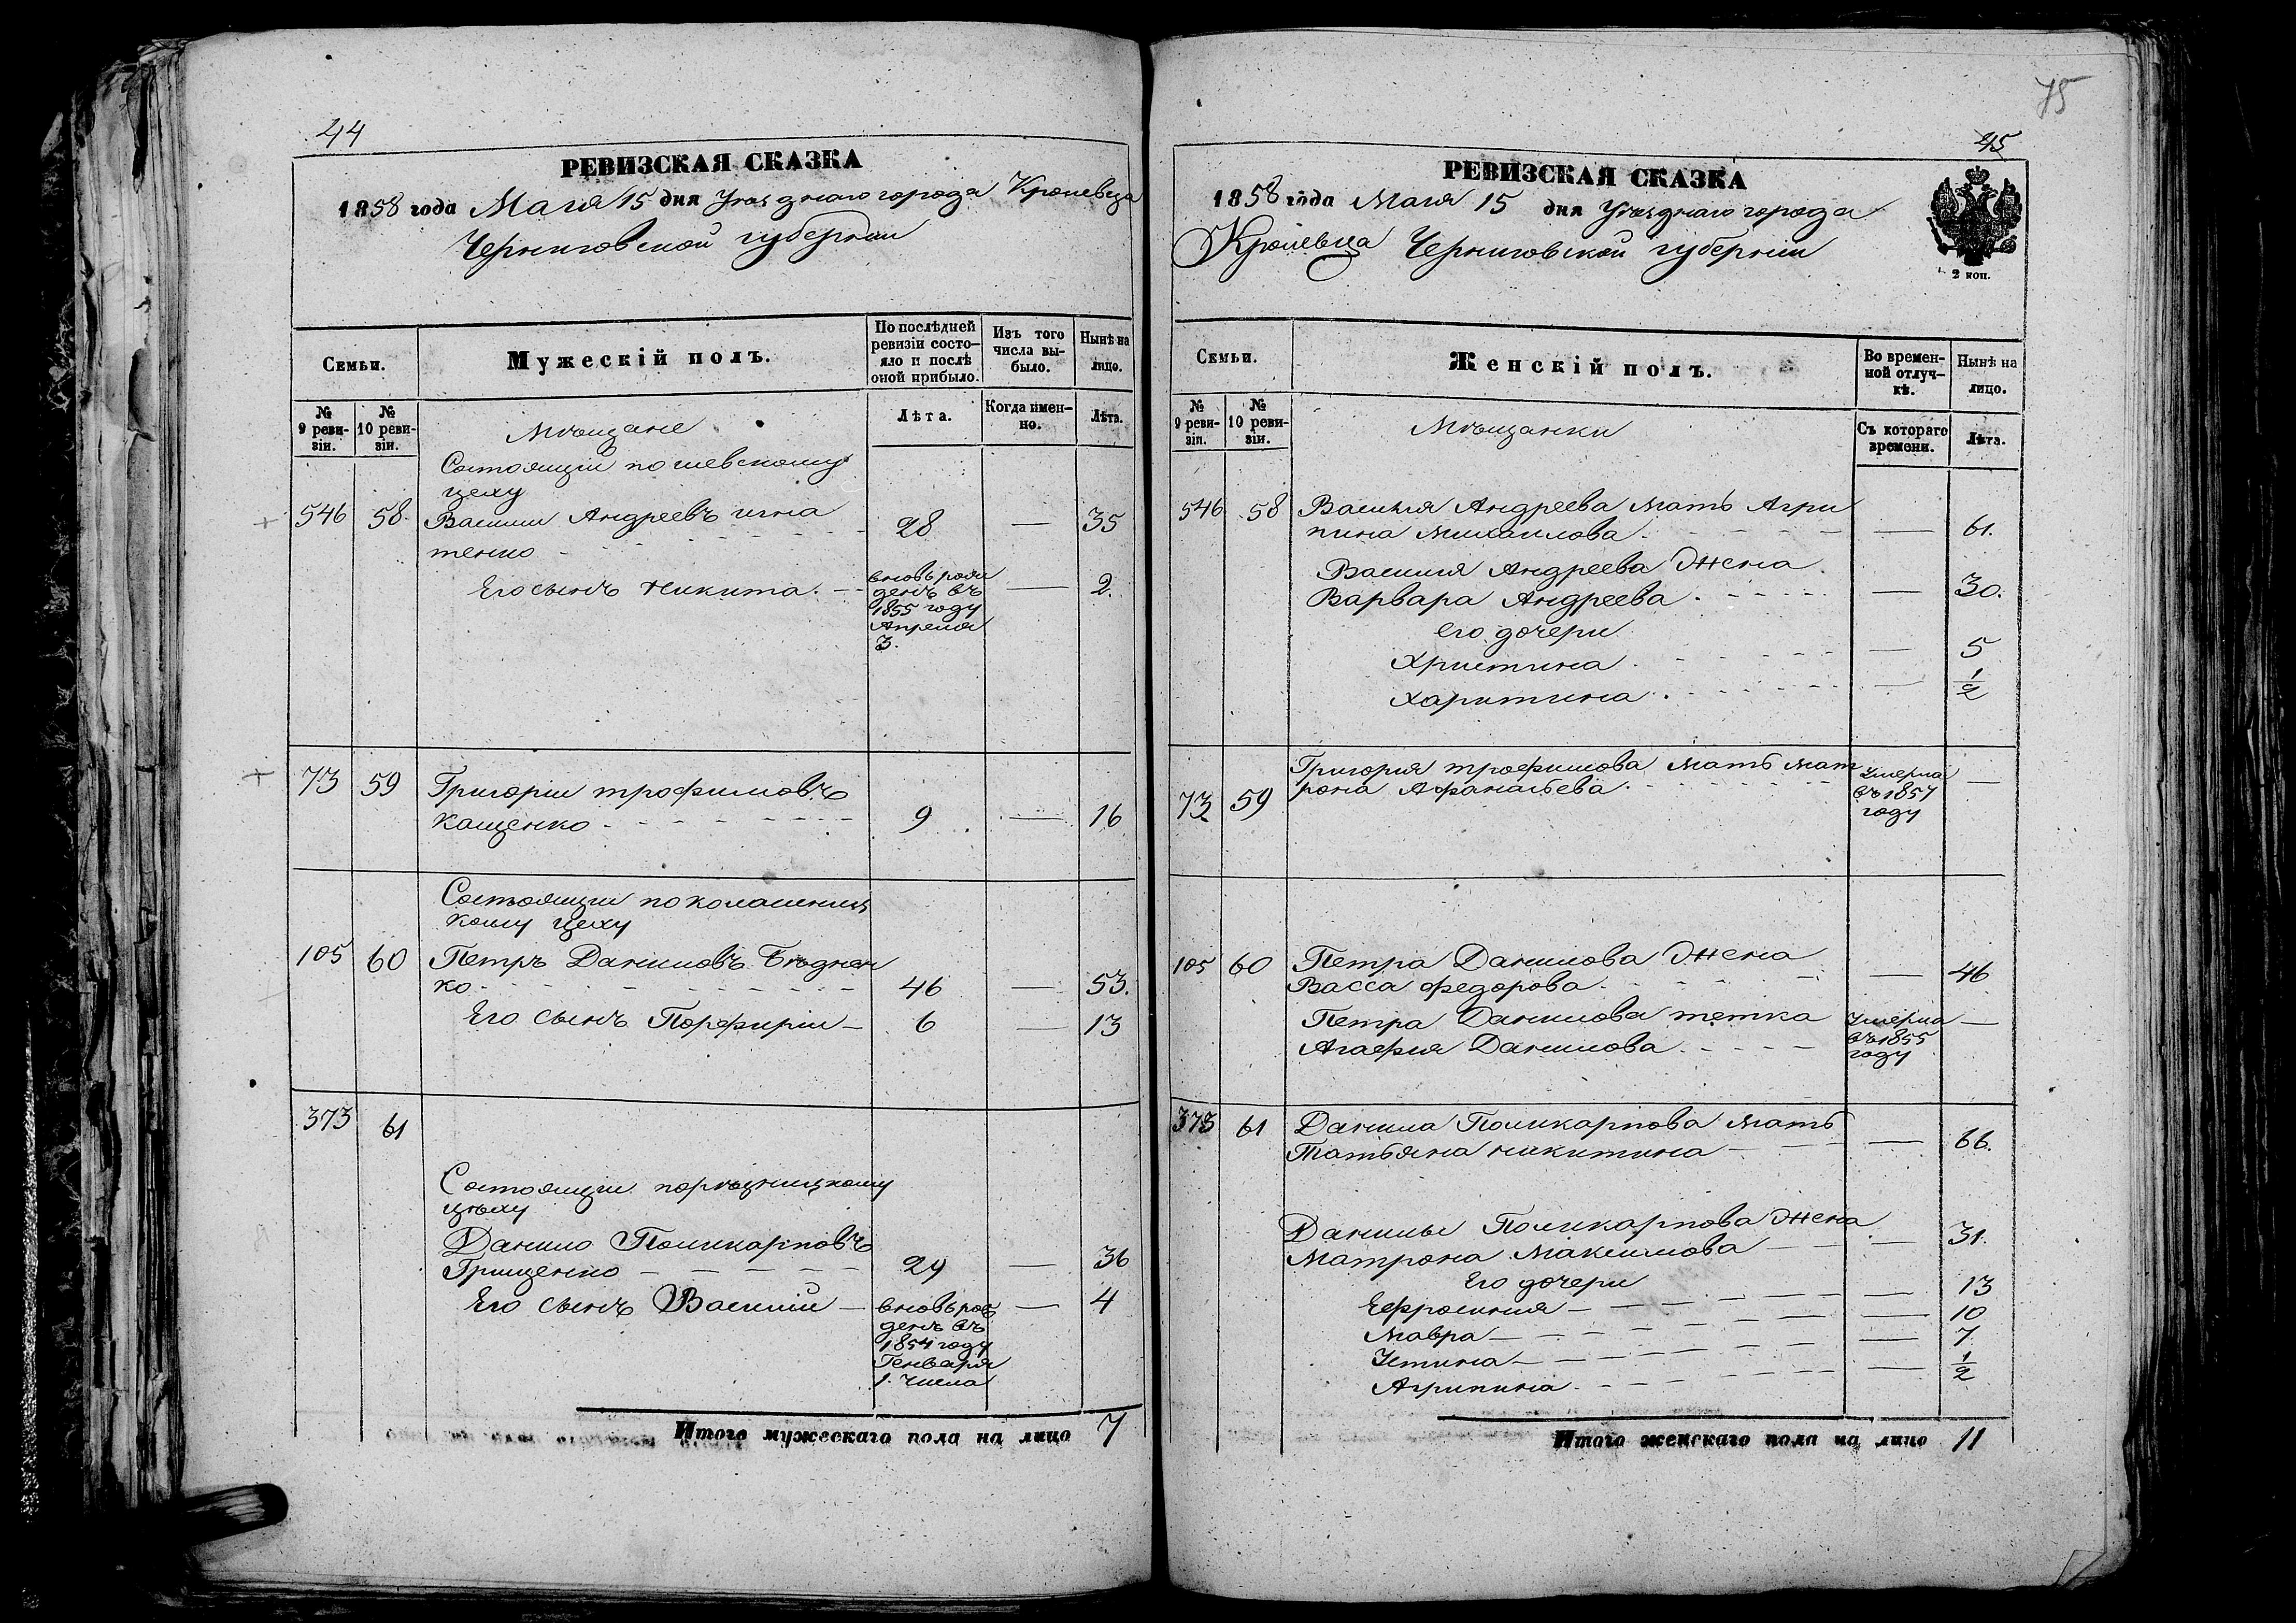 44
РЕВИЗСКАЯ СКАЗКА
1858 года Мая 15 дня Уѣзднаго города Кролевца
Черниговской губерніи
Семьи.
Мужескій полъ.
По послѣдней
ревизіи состо-
яло и послѣ
оной прибыло.
Изъ того
числа вы-
было.
Нынѣ на
лицо.
№
9 реви-
зіи.
№
10 реви-
зіи.
Лѣта.
Когда имен-
но.
Лѣта.
Мѣщане
Состоящіи по шевскому
цеху
546 58. Василии Андреевъ Игна 28 — 35
тенко
Его сынъ Никита. вновь рож — 2.
денъ въ
1855 году
Апреля
3.
73 59 Григории Трофимовъ
Кащенко 9 — 16
Состоящии по
кому цеху
105 60 Петръ Даниловъ Бѣднен
ко 46 — 53.
Его сынъ Порфирии 6 — 13
373 61
Состоящии порѣзницкому
цѣху
Данило Поликарповъ
Грищенко 29 — 36
Его сынъ Василии вновь рож — 4
денъ въ
1854 году
Генваря
1. числа
Итого мужескаго пола на лицо 7
75
45
РЕВИЗСКАЯ СКАЗКА
1858 года Мая 15 дня Уѣзднаго города
Кролевца Черниговской губерніи
2 коп.
Семьи.
Женскій полъ.
Во времен-
ной отлуч-
кѣ.
Нынѣ на
лицо.
№
9 реви-
зіи.
№
10 реви-
зіи.
Съ котораго
времени.
Лѣта.
Мѣщанки
546 58 Василія Андреева мать Агри
пина Михаилова — 61.
Василия Андреева жена
Варвара Андреева — 30.
Его дочери
Христина — 5
Харитина — 1/2
Григория Трофимова мать Мат Умерла —
73 59 рона Афанасьева въ 1857
году
105 60 Петра Данилова жена
Васса Федорова — 46
Петра Данилова тетка Умерла —
Агафия Данилова въ 1855
году
373 61 Данила Поликарпова мать
Татьяна Никитина — 66.
Данилы Поликарпова жена
Матрона Максимова — 31.
Его дочери
Ефросиния — 13
Мавра — 10
Устина — 7
Агрипина — 1/2
Итого женскаго пола на лицо 11